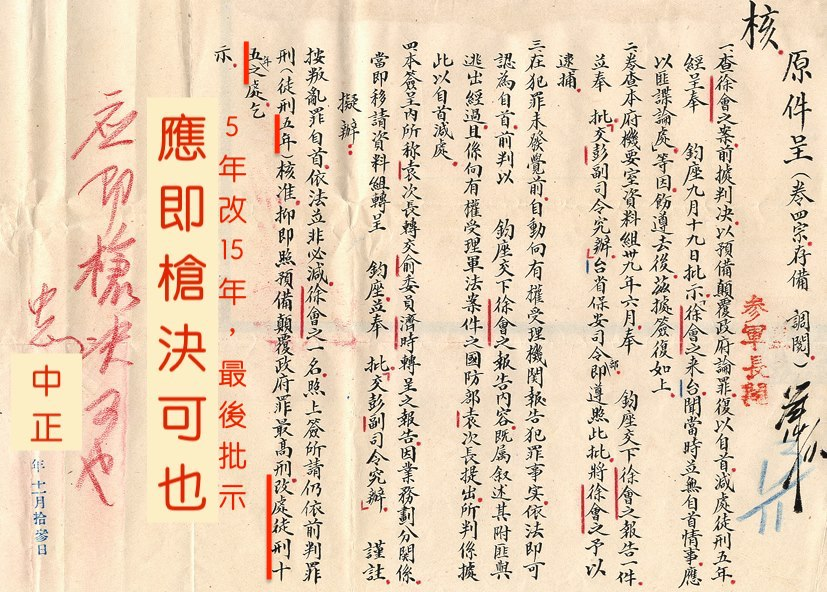 核
原件呈（卷四宗存備 調閱）
參軍長閱
一、查徐會之案前據判決以預備顛覆政府論罪復以自首減處徒刑五年
經呈奉 鈞座九月十九日批示「徐會之來台聞當時並無自首情事應
以匪諜論處」等因飭遵去後茲據簽復如上
二、卷查本府機要室資料組卅九年六月奉 鈞座交下徐會之報告一件
並奉 批「交彭副司令究辦」台省保安司令部即遵照此批將徐會之予以
逮捕
三、在犯罪未發覺前自動向有權受理機關報告犯罪事實依法即可
認為自首前判以 鈞座交下徐會之報告內容既屬叙述其附匪與
逃出經過且係向有權受理軍法案件之國防部袁次長提出所判係據
此以自首減處
四、本簽呈內所称袁次長轉交俞委員濟時轉呈之報告因業務劃分關係
當即移請資料組轉呈 鈞座並奉 批「交彭副司令究辦」 謹註
擬辦：
按叛亂罪自首依法並非必減徐會之一名照上簽所請仍依前判罪
刑（徒刑五年）核准抑即照預備顛覆政府罪最高刑改處徒刑十
五年之處乞
示
5年改15年，最後批示
應即槍決可也
應即槍決可也
中正
年十一月拾參日